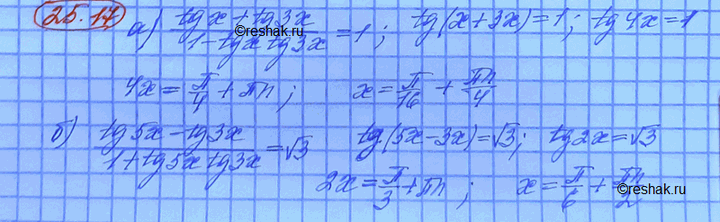 25.17 а) (tg x + tg 3x)/(1 - tg x tg 3x) = 1; tg(x+3x) = 1; tg 4x = 1
©reshak.ru
4x = π/4 + πn; x = π/16 + πn/4
б) (tg 5x - tg 3x)/(1 + tg 5x tg 3x) = √3 tg(5x-3x) = √3; tg 2x = √3
2x = π/3 + πn; x = π/6 + πn/2
©reshak.ru